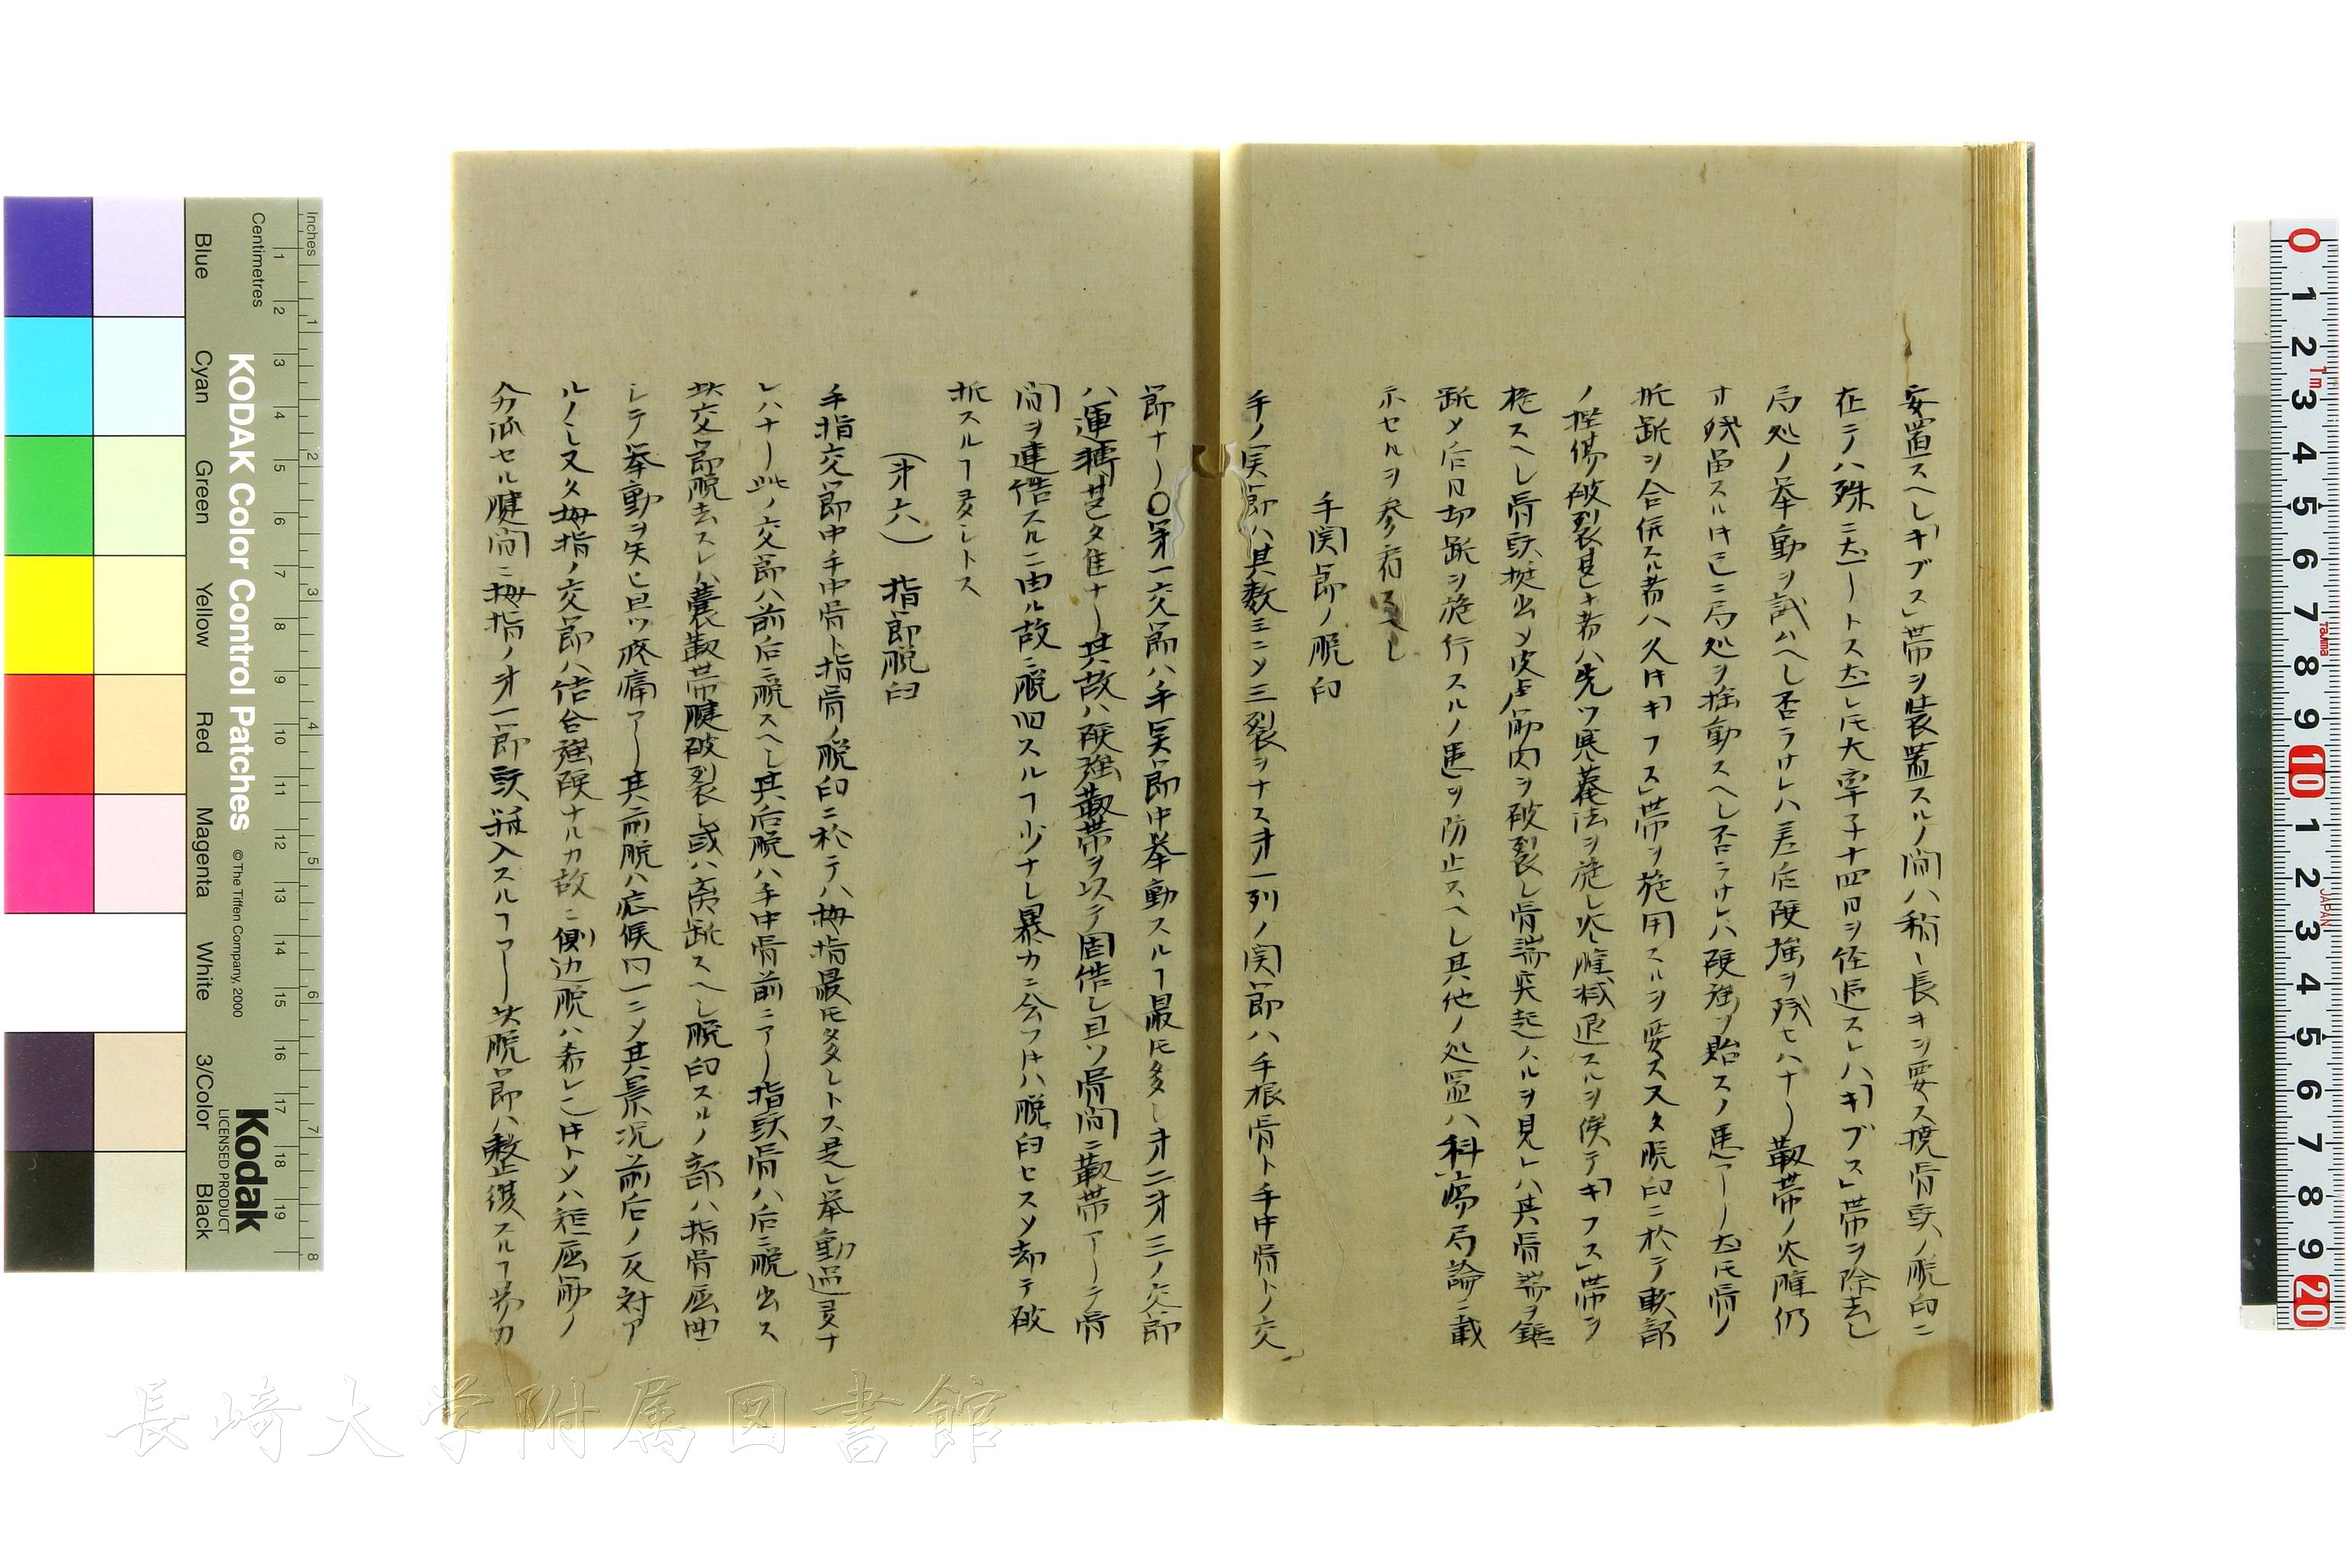 安置スヘシ「ギブス」帯ヲ装置スルノ間ハ稍〻長キヲ要ス撓骨頭ノ脱臼ニ
在テハ殊ニ然リトス然レ𪜈大率子十四日ヲ径過スレハ「ギブス」帯ヲ除去シ
局処ノ挙動ヲ試ムヘシ否ラサレハ差后硬強ヲ残セハナリ靱帯ノ炎腫仍
ホ残留スル𪜈已ニ局処ヲ揺動スヘシ否ラサレハ硬強ヲ貽スノ患アリ然𪜈骨ノ
折断ヲ合併スル者ハ久時「ギフス」帯ヲ施用スルヲ要ス又タ脱臼ニ於テ軟部
ノ挫傷破裂甚キ者ハ先ツ寒罨法ヲ施シ炎腫減退スルヲ俟テ「ギフス」帯ヲ
施スヘシ骨頭挺出シテ皮与筋肉ヲ破裂シ骨端突起スルヲ見レハ其骨端ヲ鋸
断シテ后日切断ヲ施行スルノ患ヲ防止スヘシ其他ノ処置ハ科瘍局論ニ載
示セルヲ参考スヘシ
手関節ノ脱臼
手ノ関節ハ其数三ニシテ三裂ヲナス才一列ノ関節ハ手根骨ト手中骨トノ交
節ナリ〇第一交節ハ手関節中挙動スルヿ最モ多シ才二才三ノ交節
ハ運轉甚タ隹ナリ其故ハ硬強靱帯ヲ以テ固结シ且ツ骨間ニ靱帯アリテ骨
間ヲ連结スルニ由ル故ニ脱臼スルヿ少ナシ暴力ニ会フ𪜈ハ脱臼セスシテ却テ破
折スルヿ多シトス
(才六) 指節脱臼
手指交節中手中骨ト指骨ノ脱臼ニ於テハ拇指最モ多シトス是レ挙動過多ナ
レハナリ此ノ交節ハ前后ニ脱スヘシ其后脱ハ手中骨前ニアリ指頭骨ハ后ニ脱出ス
此交節脱去スレハ囊靱帯腱破裂シ或ハ离断スヘシ脱臼スルノ部ハ指骨屈曲
シテ挙動ヲ失ヒ且ツ疼痛アリ其前脱ハ応候同一ニシテ其景况前后ノ反対ア
ルノミ又タ拇指ノ交節ハ结合強硬ナルカ故ニ側辺脱ハ希レナリ時トシテハ短屈筋ノ
分派セル腱間ニ拇指ノ才一節頭嵌入スルヿアリ此脱節ハ整復スルヿ労力